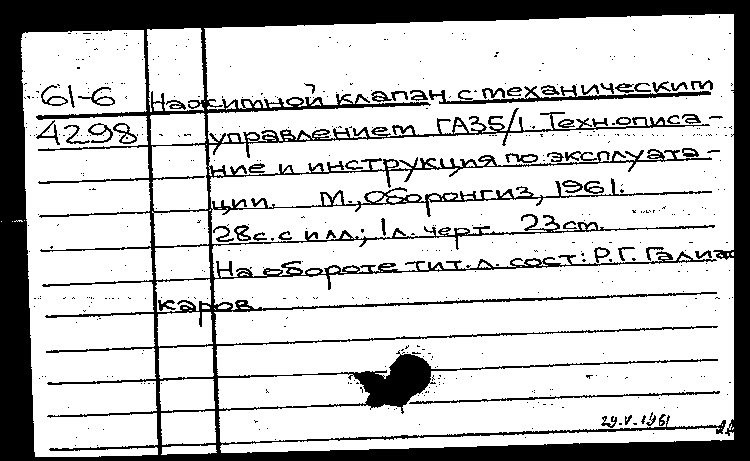 61-6 Нажитной клапан с механическим
4298 управлением ГА35/1. Техн.описа-
ние и инструкция по эксплуата-
ции. М., Оборонгиз, 1961.
28с.с илл; 1л. черт. 23cm.
На обороте тит.л. сост: Р.Г.
каров.
29.V.1961